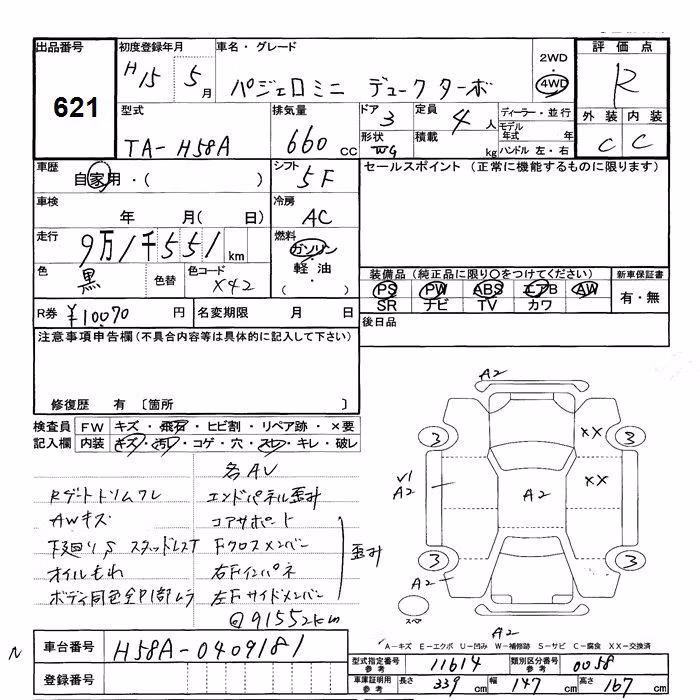 出品番号 初度登録年月 車名・グレード 2WD 評価点
621 H15 5月 パジェロミニ デュークターボ 4WD R
型式 排気量 ドア 3 定員 4人 ディーラー・並行 外装 内装
TA-H58A 660cc 形状 WG 積載 kg モデル年式 年 C C
ハンドル 左・右
車歴 自家用・( ) シフト 5F セールスポイント (正常に機能するものに限ります)
車検 年 月( 日) 冷房 AC
走行 9万1千551km 燃料 ガソリン
軽油
( )
色 黒 色替 色コード X42 装備品(純正品に限り○をつけてください) 新車保証書
PS PW ABS エアB AW 有・無
SR ナビ TV カワ
R券 ¥10070円 名変期限 月 日 後日品
注意事項申告欄(不具合内容等は具体的に記入して下さい)
修復歴 有 〔箇所 〕
検査員 FW キズ・飛石・ヒビ割・リペア跡・×要
記入欄 内装 キズ・汚れ・コゲ・穴・スレ・キレ・破レ
名AV
Rゲートトリムワレ エンドパネル歪み
AWキズ コアサポート
下廻りS スタッドレスT Fクロスメンバー 歪み
オイルもれ 右Fインパネ
ボディ同色全P1部ムラ 左Fサイドメンバー
91552km
A2
3 XX 3
√1
A2 A2 XX
3 3
A2
スペ
A2
A-キズ E-エクボ U-凹み W-補修跡 S-サビ C-腐食 XX-交換済
N 車台番号 H58A-0409181
登録番号
型式指定番号 参考 11614 類別区分番号 参考 0058
車庫証明用 参考 長さ 339cm 幅 147cm 高さ 167cm